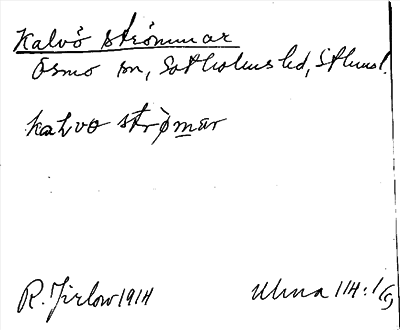 Kalvö strömmar
Ösmo sn, Sotholms hd, Sthms l.
kalvo strömar
R. Jirlow 1914 Ulma 114:1